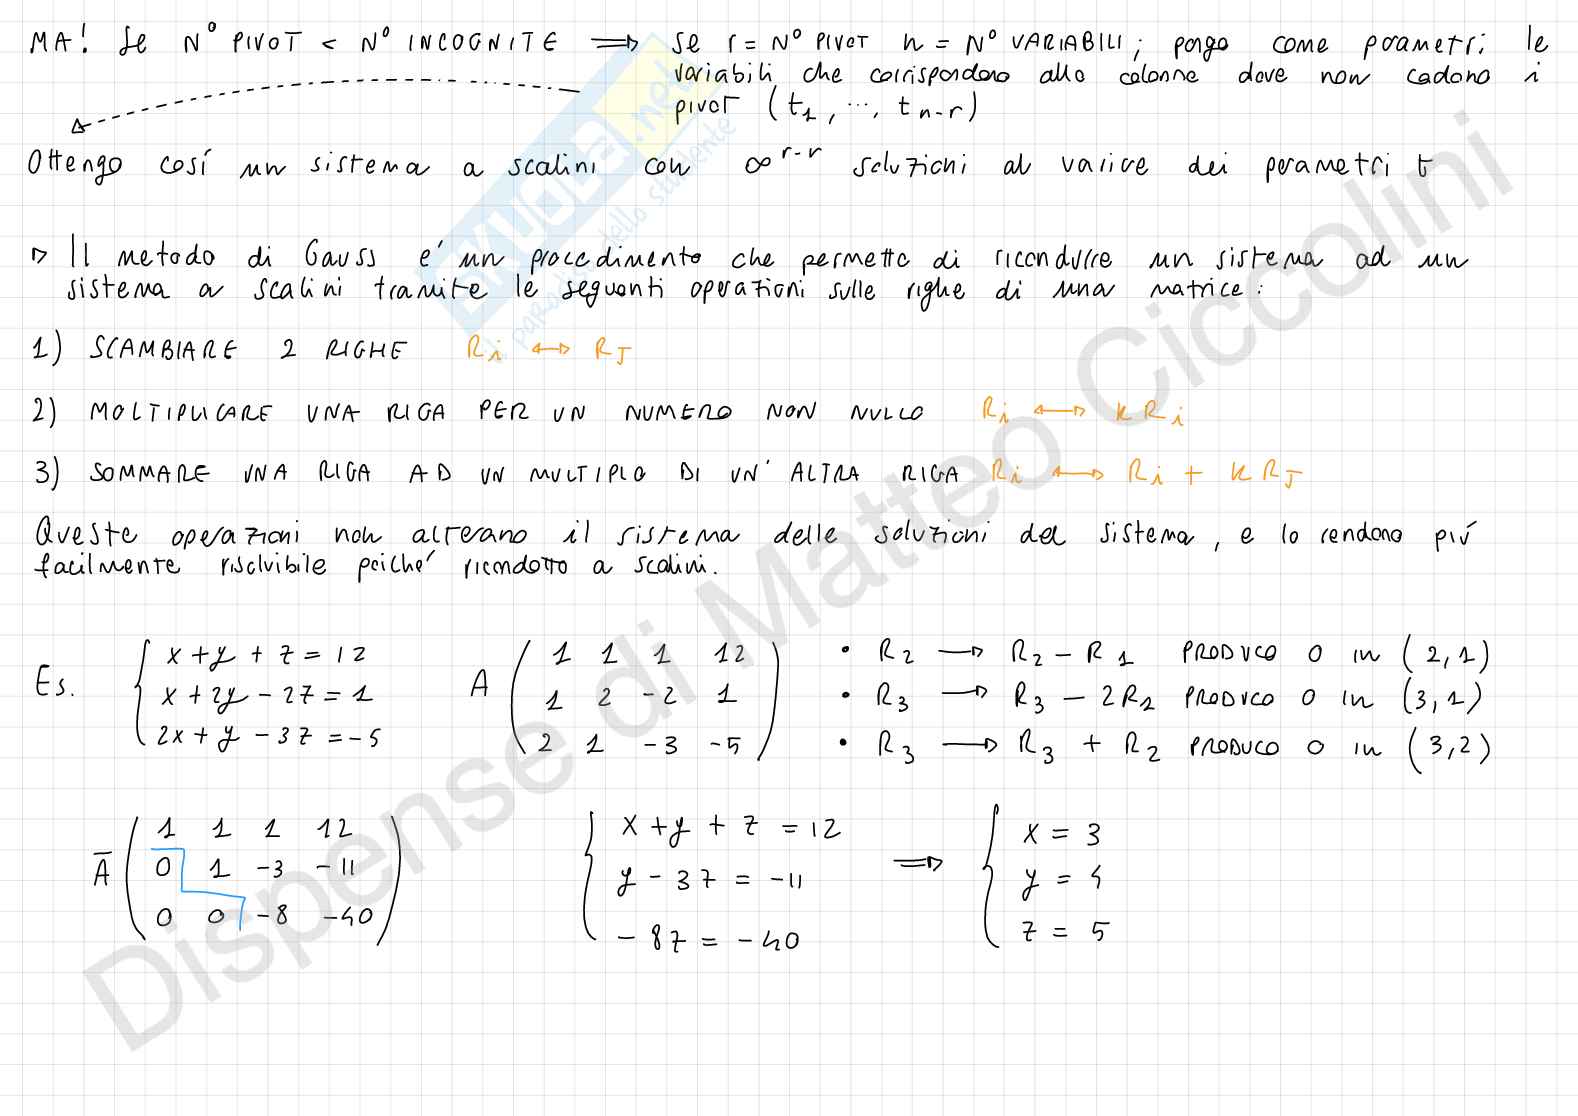 MA! Se N° PIVOT < N° INCOGNITE ⟹ Se r = N° PIVOT n = N° VARIABILI ; pongo come parametri le
variabili che corrispondono alle colonne dove non cadono i
pivot (t1, ..., tn-r)
Ottengo cosí un sistema a scalini con ∞^r-r soluzioni al variare dei parametri t
▷ Il metodo di Gauss e' un procedimento che permette di ricondurre un sistema ad un
sistema a scalini tramite le seguenti operazioni sulle righe di una matrice:
1) SCAMBIARE 2 RIGHE Ri ↔ RJ
2) MOLTIPLICARE UNA RIGA PER UN NUMERO NON NULLO Ri ↔ kRi
3) SOMMARE UNA RIGA AD UN MULTIPLO DI UN' ALTRA RIGA Ri ↔ Ri + kRJ
Queste operazioni non alterano il sistema delle soluzioni del sistema, e lo rendono piú
facilmente risolvibile poiche' ricondotto a scalini.
Es.
x + y + z = 12
x + 2y - 2z = 1
2x + y - 3z = -5
A
1 1 1 12
1 2 -2 1
2 1 -3 -5
• R2 → R2 - R1 PRODUCO 0 in (2,1)
• R3 → R3 - 2R1 PRODUCO 0 in (3,1)
• R3 → R3 + R2 PRODUCO 0 in (3,2)
Ā
1 1 1 12
0 1 -3 -11
0 0 -8 -40
x + y + z = 12
y - 3z = -11
-8z = -40
⟹
x = 3
y = 4
z = 5
Dispense di Matteo Ciccolini
SKUOLA.net
il paradiso dello studente